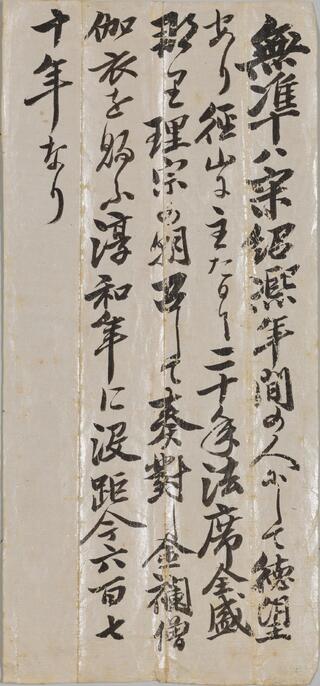 無準ハ宋紹熈年間の人にして徳望
あり徑山に主たること二十年法席全盛
理宗の朝召して奏對し金襴僧
伽衣を賜ふ淳和年に没距今六百七
十年なり